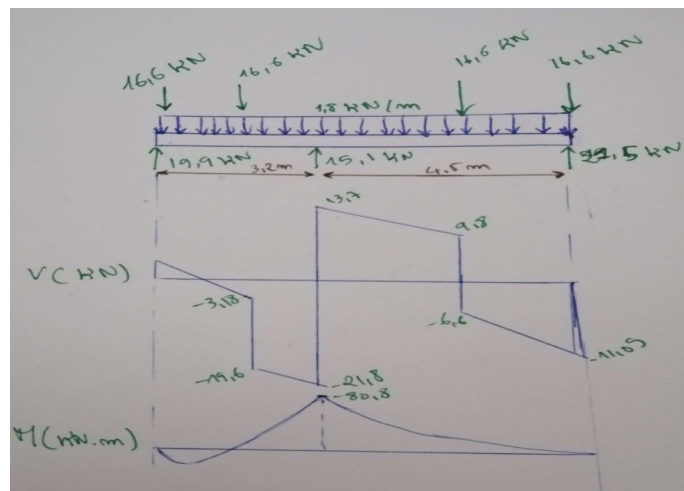 16,6 KN 16,6 KN 16,6 KN 16,6 KN
1,8 KN/m
19,9 KN 15,1 KN 5 KN
3,2m 4,5m
13,7
9,8
V(KN)
-3,18
-6,6
-19,6
-21,8
-11,09
-80,8
M(KN.m)